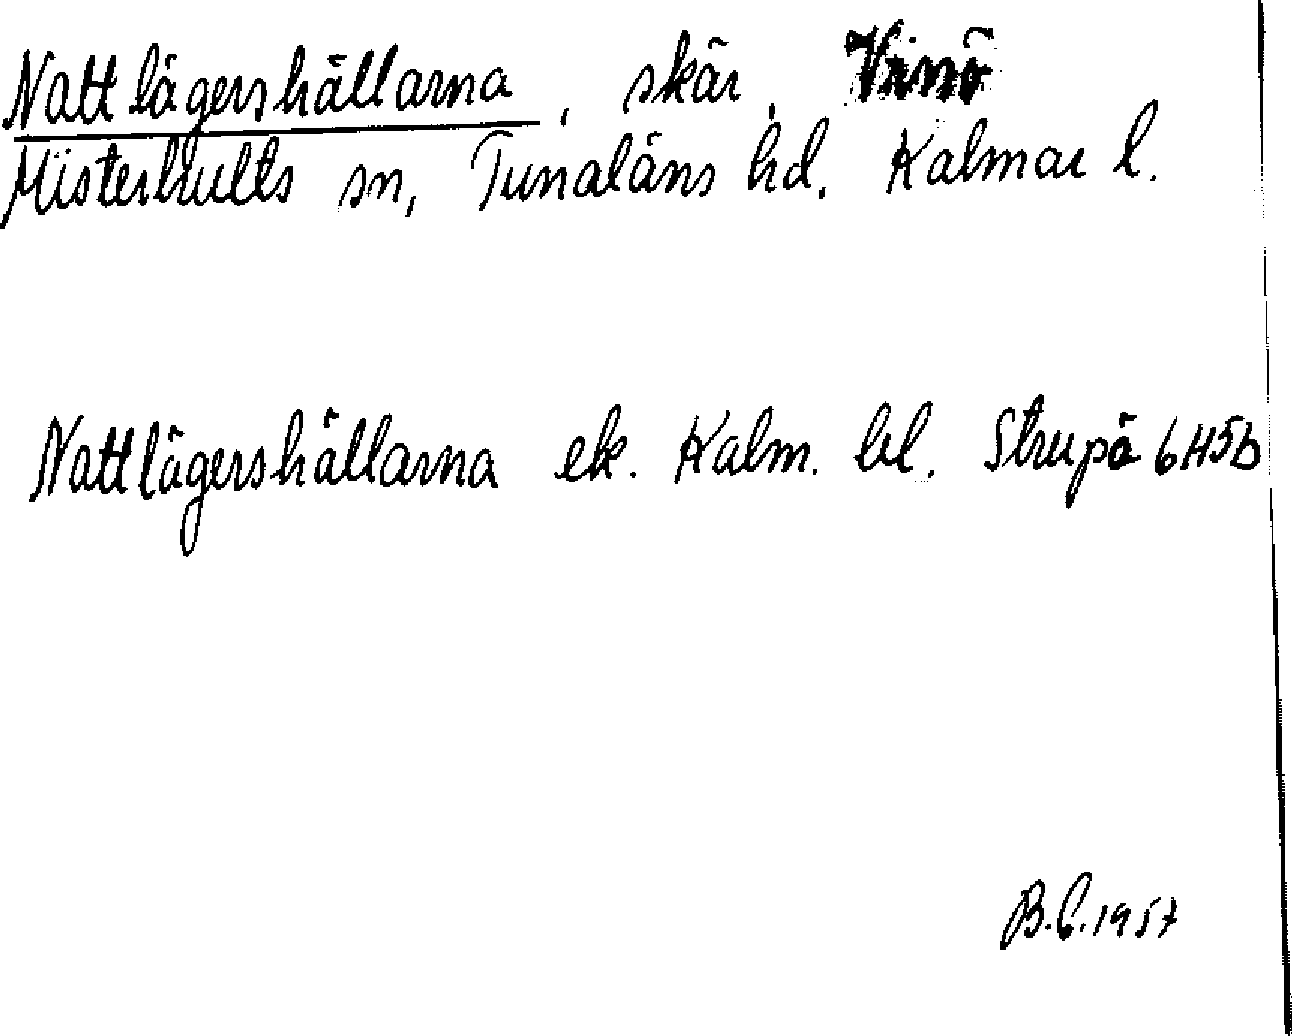 Nattlägershällarna, skär, Vinö
Misterhults sn, Tunaläns hd. Kalmar l.
Nattlägershällarna ek. Kalm. bl. Strupö 6H5b
B.C. 1957